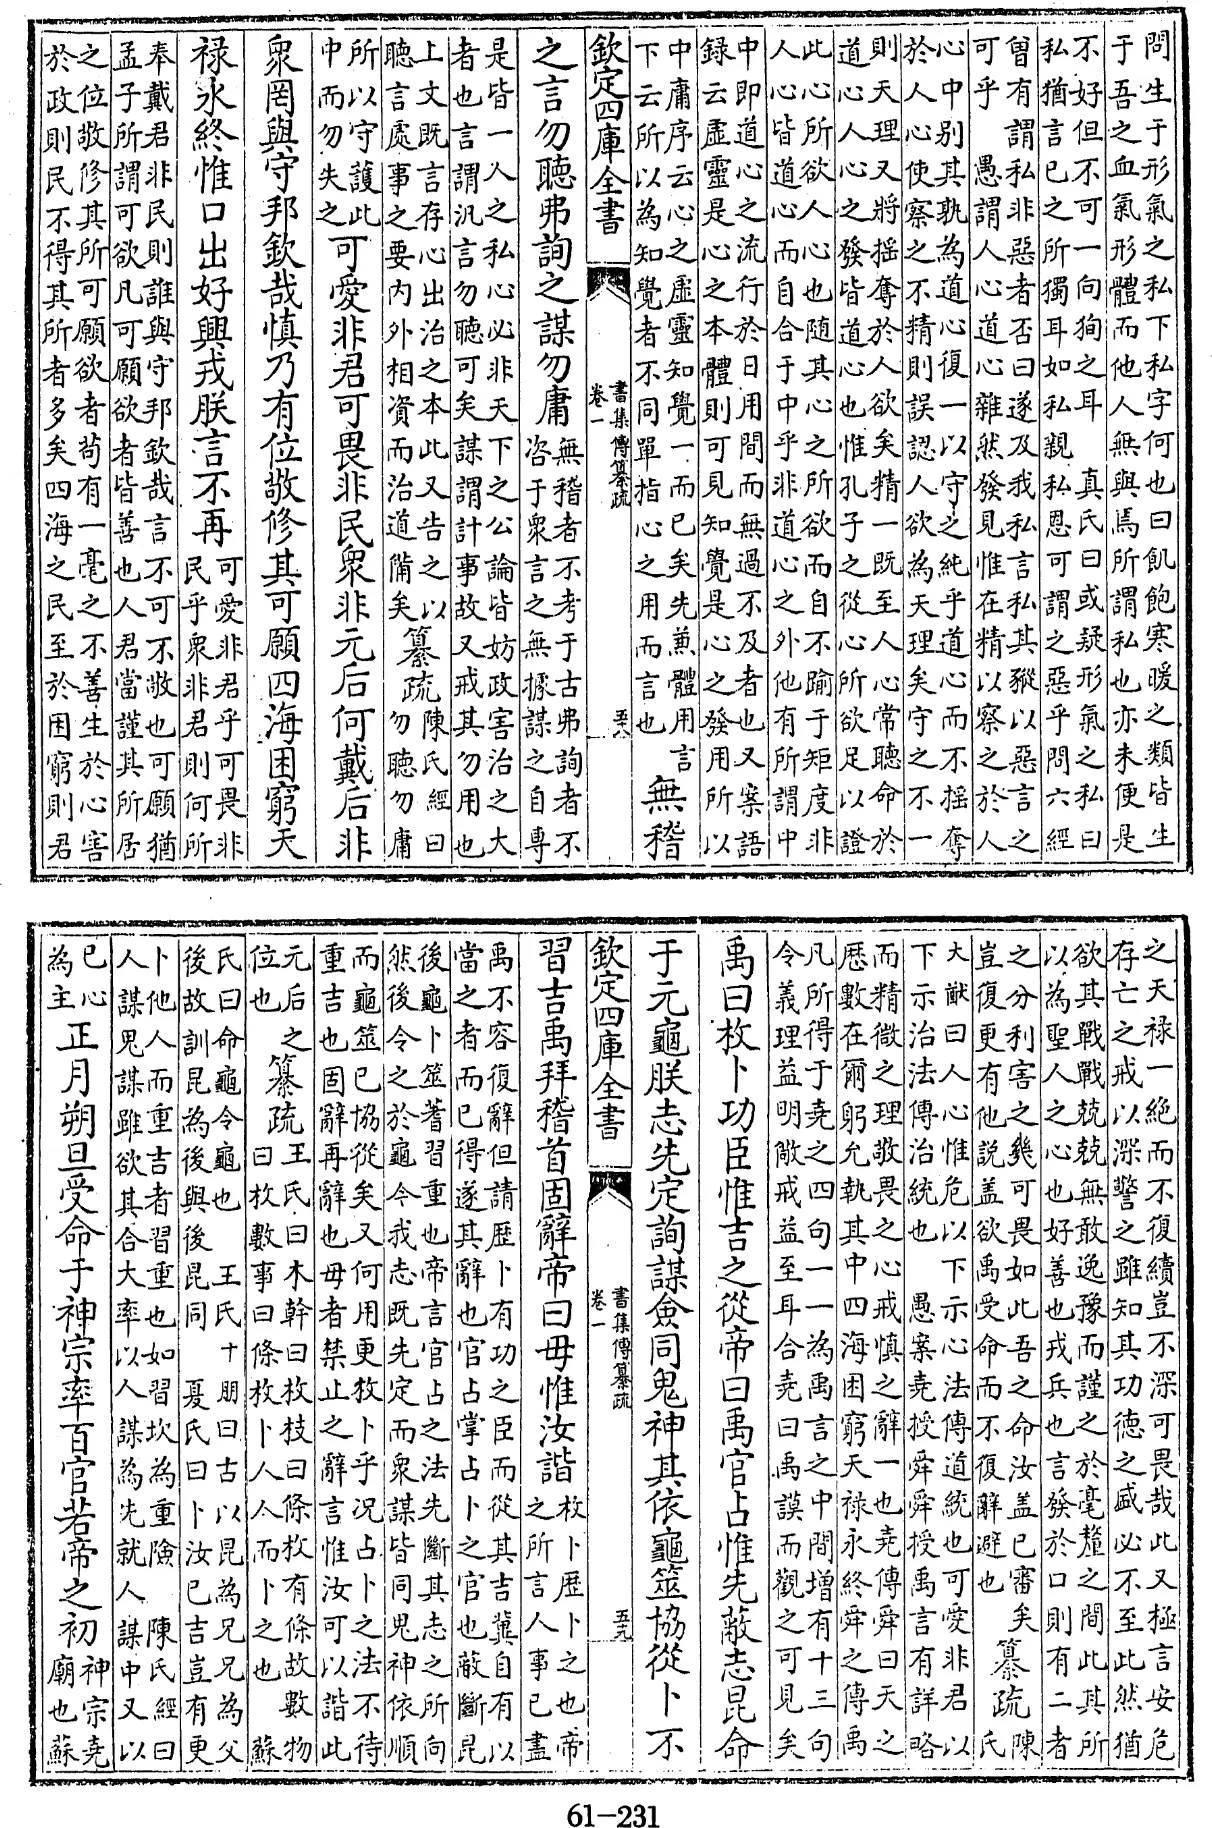 問生于形氣之私下私字何也曰飢飽寒暖之類皆生
于吾之血氣形體而他人無與焉所謂私也亦未便是
不好但不可一向狥之耳　真氏曰或疑形氣之私曰
私猶言已之所獨耳如私親私恩可謂之惡乎問六經
曽有謂私非惡者否曰遂及我私言私其豵以惡言之
可乎　愚謂人心道心雜然發見惟在精以察之於人
心中别其孰為道心復一以守之純乎道心而不揺奪
於人心使察之不精則誤認人欲為天理矣守之不一
則天理又將揺奪於人欲矣精一既至人心常聽命於
道心人心之發皆道心也惟孔子之從心所欲足以證
此心所欲人心也随其心之所欲而自不踰于矩度非
人心皆道心而自合于中乎非道心之外他有所謂中
中即道心之流行於日用間而無過不及者也又案語
録云虚靈是心之本體則可見知覺是心之發用所以
中庸序云心之虚靈知覺一而已矣先兼體用言
下云所以為知覺者不同單指心之用而言也
無稽
欽定四庫全書
書集傳纂疏
卷一
五八
之言勿聽弗詢之謀勿庸
無稽者不考于古弗詢者不
咨于衆言之無據謀之自專
是皆一人之私心必非天下之公論皆妨政害治之大
者也言謂汎言勿聽可矣謀謂計事故又戒其勿用也
上文既言存心出治之本此又告之以
聽言處事之要内外相資而治道備矣
纂疏
陳氏經曰
勿聽勿庸
所以守護此
中而勿失之
可愛非君可畏非民衆非元后何戴后非
衆罔與守邦欽哉慎乃有位敬修其可願四海困窮天
禄永終惟口出好興戎朕言不再
可愛非君乎可畏非
民乎衆非君則何所
奉戴君非民則誰與守邦欽哉言不可不敬也可願猶
孟子所謂可欲凡可願欲者皆善也人君當謹其所居
之位敬修其所可願欲者苟有一毫之不善生於心害
於政則民不得其所者多矣四海之民至於困窮則君
之天禄一絶而不復續豈不深可畏哉此又極言安危
存亡之戒以深警之雖知其功德之盛必不至此然猶
欲其戰戰兢兢無敢逸豫而謹之於毫釐之間此其所
以為聖人之心也好善也戎兵也言發於口則有二者
之分利害之幾可畏如此吾之命汝盖已審矣
豈復更有他説盖欲禹受命而不復辭避也
纂疏
陳
氏
大猷曰人心惟危以下示心法傳道統也可愛非君以
下示治法傳治統也　愚案堯授舜舜授禹言有詳略
而精微之理敬畏之心戒慎之辭一也堯傳舜曰天之
厯數在爾躬允執其中四海困窮天禄永終舜之傳禹
凡所得于堯之四句一一為禹言之中間增有十三句
令義理益明儆戒益至耳合堯曰禹謨而觀之可見矣
禹曰枚卜功臣惟吉之從帝曰禹官占惟先蔽志昆命
于元龜朕志先定詢謀僉同鬼神其依龜筮協從卜不
欽定四庫全書
書集傳纂疏
卷一
五九
習吉禹拜稽首固辭帝曰毋惟汝諧
枚卜歴卜之也帝
之所言人事已盡
禹不容復辭但請歴卜有功之臣而從其吉冀自有以
當之者而已得遂其辭也官占掌占卜之官也蔽斷昆
後龜卜筮蓍習重也帝言官占之法先斷其志之所向
然後令之於龜今我志既先定而衆謀皆同鬼神依順
而龜筮已協從矣又何用更枚卜乎況占卜之法不待
重吉也固辭再辭也毋者禁止之辭言惟汝可以諧此
元后之
位也
纂疏
王氏曰木幹曰枚枝曰條枚有條故數物
曰枚數事曰條枚卜人人而卜之也　蘇
氏曰命龜令龜也　王氏十朋曰古以昆為兄兄為父
後故訓昆為後與後昆同　夏氏曰卜汝已吉豈有更
卜他人而重吉者習重也如習坎為重險　陳氏經曰
人謀鬼謀雖欲其合大率以人謀為先就人謀中又以
已心
為主
正月朔旦受命于神宗率百官若帝之初
神宗堯
廟也蘇
61-231